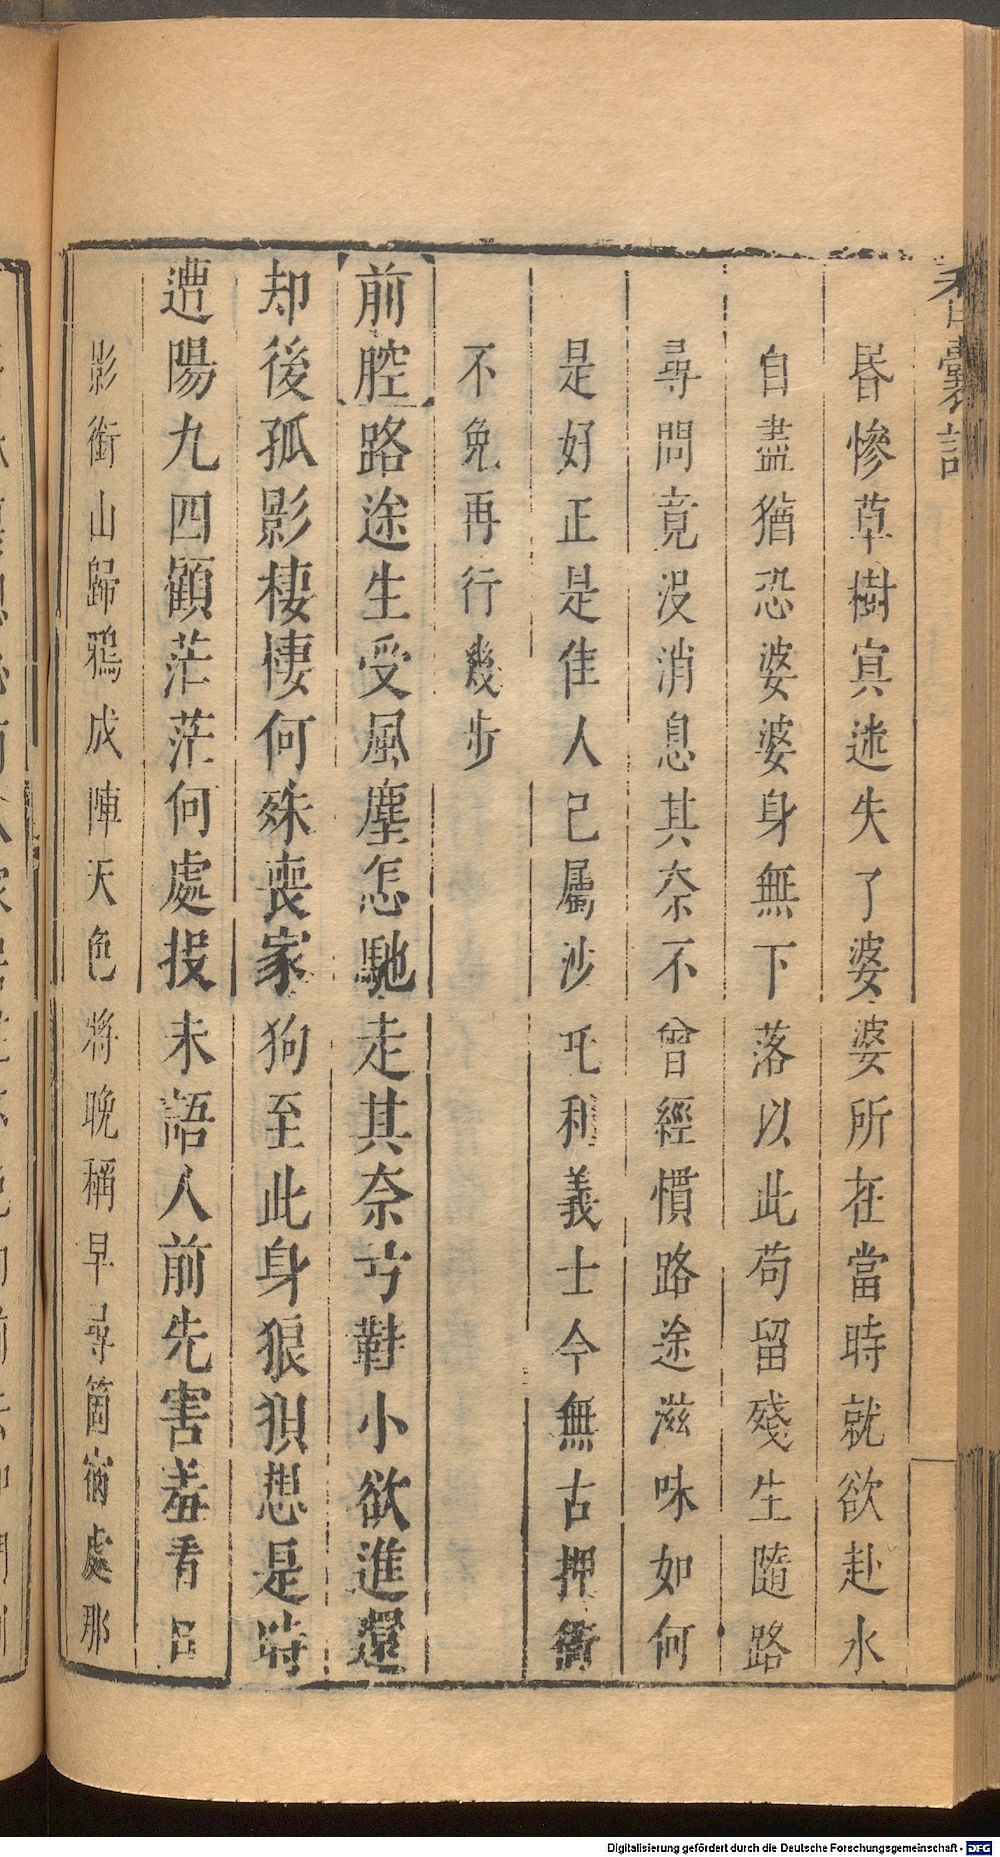 香囊記
昏慘草樹㝠迷失了婆婆所在當時就欲赴水
自盡猶恐婆婆身無下落以此苟留殘生隨路
尋問竟没消息其奈不曾經慣路途滋味如何
是好正是佳人已屬沙吒利義士今無古押衙
不免再行幾步
前腔路途生受風塵怎馳走其奈兮鞋小欲進還
却後孤影棲棲何殊喪家狗至此身狼狽想是時
遭陽九四顧茫茫何處投未語人前先害羞看日
影銜山歸鴉成陣天色將晚稱早尋箇宿處那
Digitalisierung gefördert durch die Deutsche Forschungsgemeinschaft - DFG